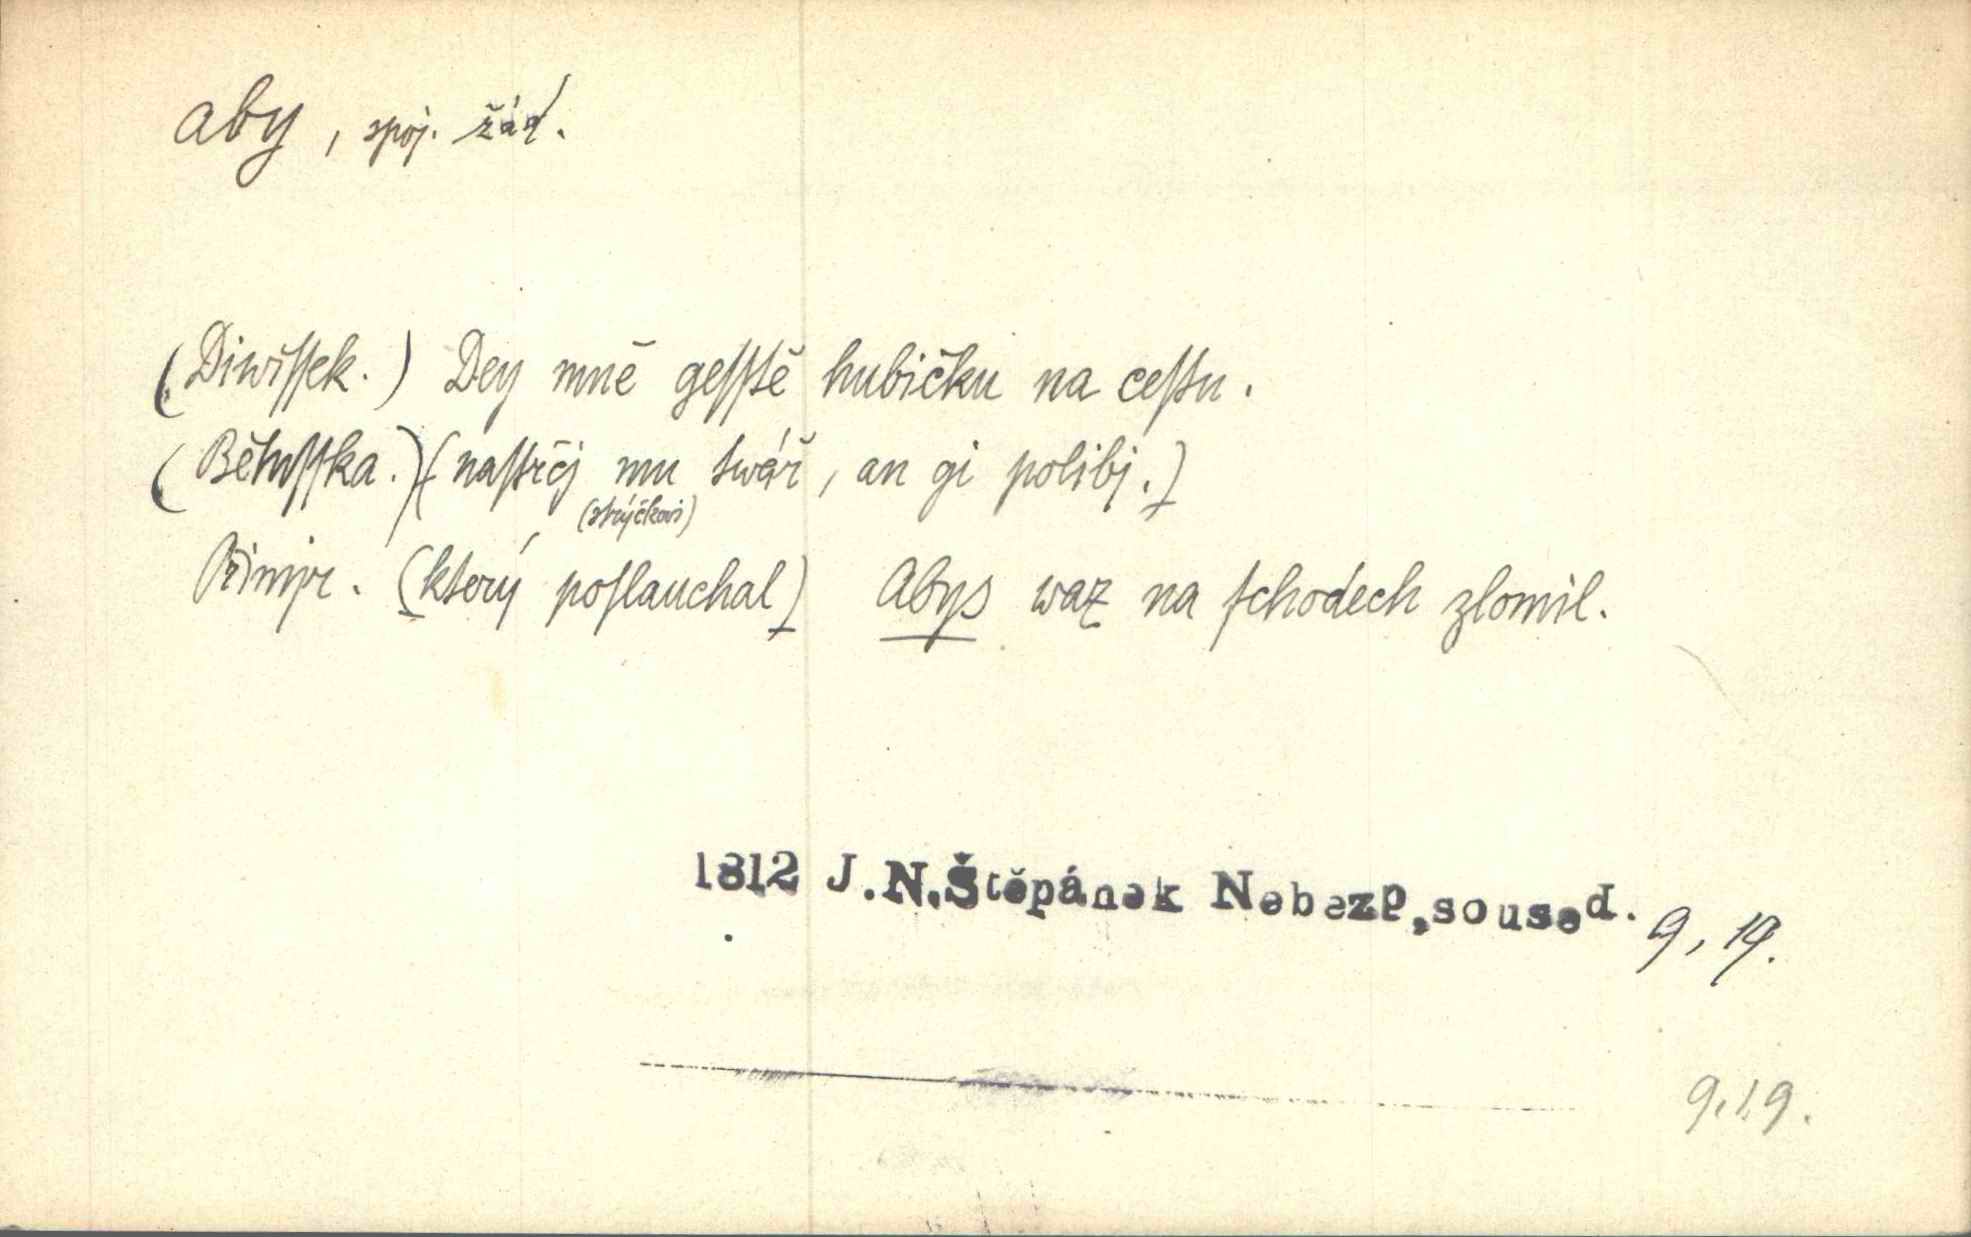 aby, spoj. žád.
(Diwissek.) Dey mně gesstě hubičku na cestu.
(Bětusska.)(nastrčj mu twář, an gi polibj.)
(strýčkovi)
(který poslauchal) Abys waz na schodech zlomil.
1812 J.N.Štěpánek Nebezp.soused. 9, 19.
9,19.